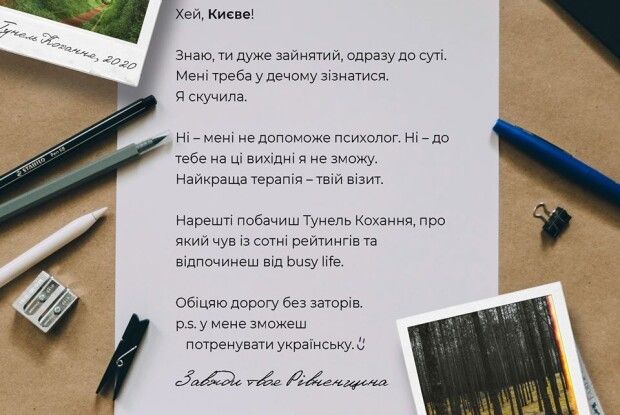 Тунель Кохання, 2020
Хей, Києве!
Знаю, ти дуже зайнятий, одразу до суті.
Мені треба у дечому зізнатися.
Я скучила.
Ні – мені не допоможе психолог. Ні – до
тебе на ці вихідні я не зможу.
Найкраща терапія – твій візит.
Нарешті побачиш Тунель Кохання, про
який чув із сотні рейтингів та
відпочинеш від busy life.
Обіцяю дорогу без заторів.
p.s. у мене зможеш
потренувати українську.
Завжди твоє Рівненщина
STABILO